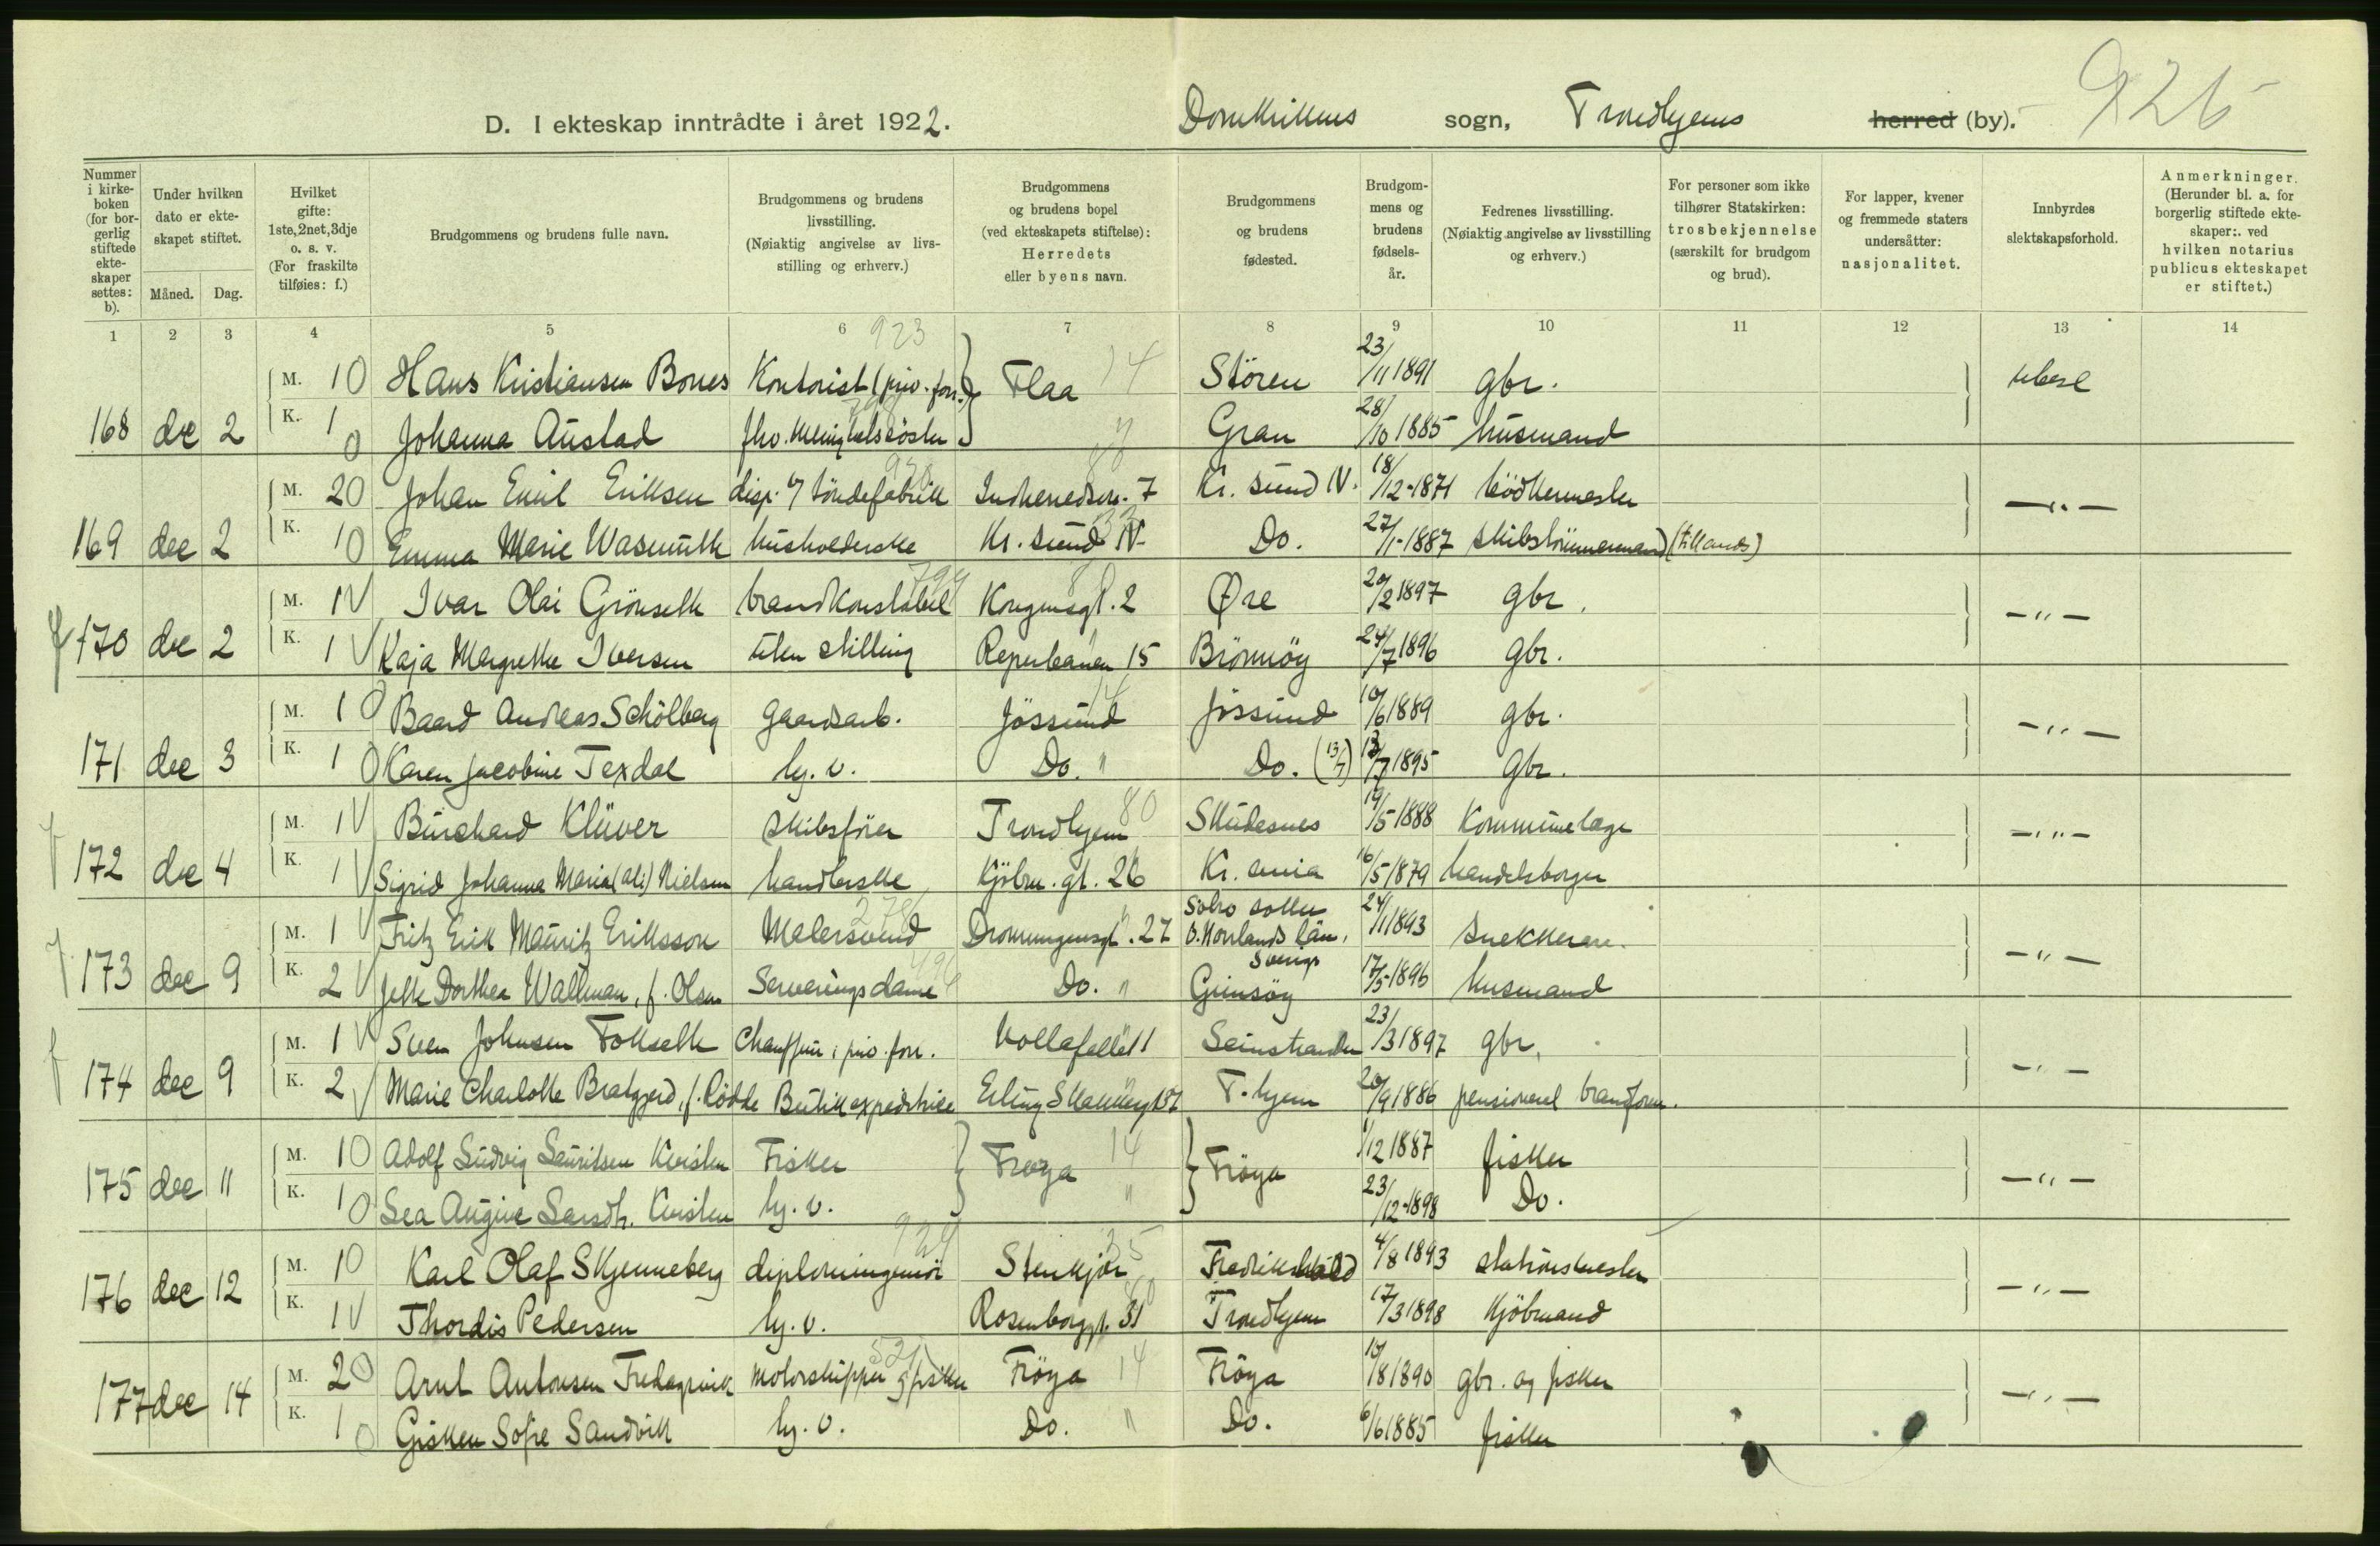 926
D. I ekteskap inntrådte i året 1922. Domkirkens sogn, Trondhjems herred (by).
Nummer i kirkeboken (for borgerlig stiftede ekteskaper settes: b).
Under hvilken dato er ekteskapet stiftet.
Måned. Dag.
Hvilket gifte: 1ste, 2net, 3dje o. s. v. (For fraskilte tilføies: f.)
Brudgommens og brudens fulle navn.
Brudgommens og brudens livsstilling. (Nøiaktig angivelse av livsstilling og erhverv.)
Brudgommens og brudens bopel (ved ekteskapets stiftelse): Herredets eller byens navn.
Brudgommens og brudens fødested.
Brudgommens og brudens fødselsår.
Fedrenes livsstilling. (Nøiaktig angivelse av livsstilling og erhverv.)
For personer som ikke tilhører Statskirken: trosbekjennelse (særskilt for brudgom og brud).
For lapper, kvener og fremmede staters undersåtter: nasjonalitet.
Innbyrdes slektskapsforhold.
Anmerkninger. (Herunder bl. a. for borgerlig stiftede ekteskaper: ved hvilken notarius publicus ekteskapet er stiftet.)
1 2 3 4 5 6 7 8 9 10 11 12 13 14
923
M. 10 Hans Kristiansen Bones Kontorist (priv. forr.) Flaa 14 Støren 23/11 1891 gbr. ubesl
168 dec 2 K. 10 Johanna Austad fhv. Gran 28/10 1885 husmand
M. 20 Johan Emil Eriksen disp. v/ töndefabrik Indherredsv. 7 Kr. sund N. 18/12-1871 bödkermester —"—
169 dec 2 K. 10 Emma Marie Wasmuth husholderske Kr. sund N. Do. 27/1-1887 skibstömmermand (tillands)
M. 1 V Ivar Olai Grönseth brandkonstabel Kongensgt. 2 Øre 20/2 1897 gbr. —"—
170 dec 2 K. 1 V Kaja Margrethe Iversen uten stilling Reperbanen 15 Brönnöy 24/7 1896 gbr.
M. 10 Baard Andreas Schölberg Gaardsarb. Jössund 14 Jössund 10/6 1889 gbr. —"—
171 dec 3 K. 10 Karen Jacobine Texdal hj. v. Do. " Do. (13/7) 13/7 1895 gbr.
M. 1 V Burchard Klüver skibsförer Trondhjem 80 Skudesnes 19/5 1888 Kommunelæge —"—
172 dec 4 K. 1 V Sigrid Johanna Maria (ali) Nielsen handlerske Kjöbm. gt. 26 Kr. ania 16/5 1879 handelsborger
M. 1 V Fritz Erik Mauritz Eriksson Malersvend 278 Dronningensgt. 27 24/11 1893 snekkeren. —"—
173 dec 9 K. 2 V Jette Dorthea Wallman, f. Olsen Serveringsdame Do. " Gimsöy 17/5-1896 husmand
M. 1 V Sven Johnsen Folkseth Chauffeur i priv. forr. Vollafallet 1 23/3 1897 gbr. —"—
174 dec 9 K. 2 V Marie Charlotte Bratgjerd, f. Rödde Butikexpeditrice T.hjem 20/9 1886 pensioneret brandform.
M. 10 Adolf Ludvig Lauritsen Kvisten Fisker Fröya 14 Fröya 1/12 1887 fisker —"—
175 dec 11 K. 10 Lea Augine Larsdtr. Kvisten hj. v. " 23/12-1898 Do.
M. 10 Karl Olaf Skjenneberg diplomingeniör 924 Stenkjær 35 Fredrikshald 4/8 1893 stationsmester —"—
176 dec 12 K. 1 V Thordis Pedersen hj. v. Rosenborggt. 31 Trondhjem 17/3 1898 kjöbmand
M. 20 Arnt Antonsen Fredagsvik motorskipper og fisker Fröya 14 Fröya 10/8 1890 gbr. og fisker —"—
177 dec 14 K. 10 Gisken Sofie Sandvik hj. v. Do. " Do. 6/6 1885 fisker